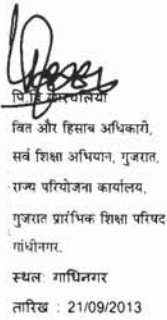 पि.बि.
वित और हिसाब अधिकारी,
सर्व शिक्षा अभियान, गुजरात,
राज्य परियोजना कार्यालय,
गुजरात प्रारंभिक शिक्षा परिषद
गांधीनगर.
स्थल: गाधिनगर
तारिख : 21/09/2013